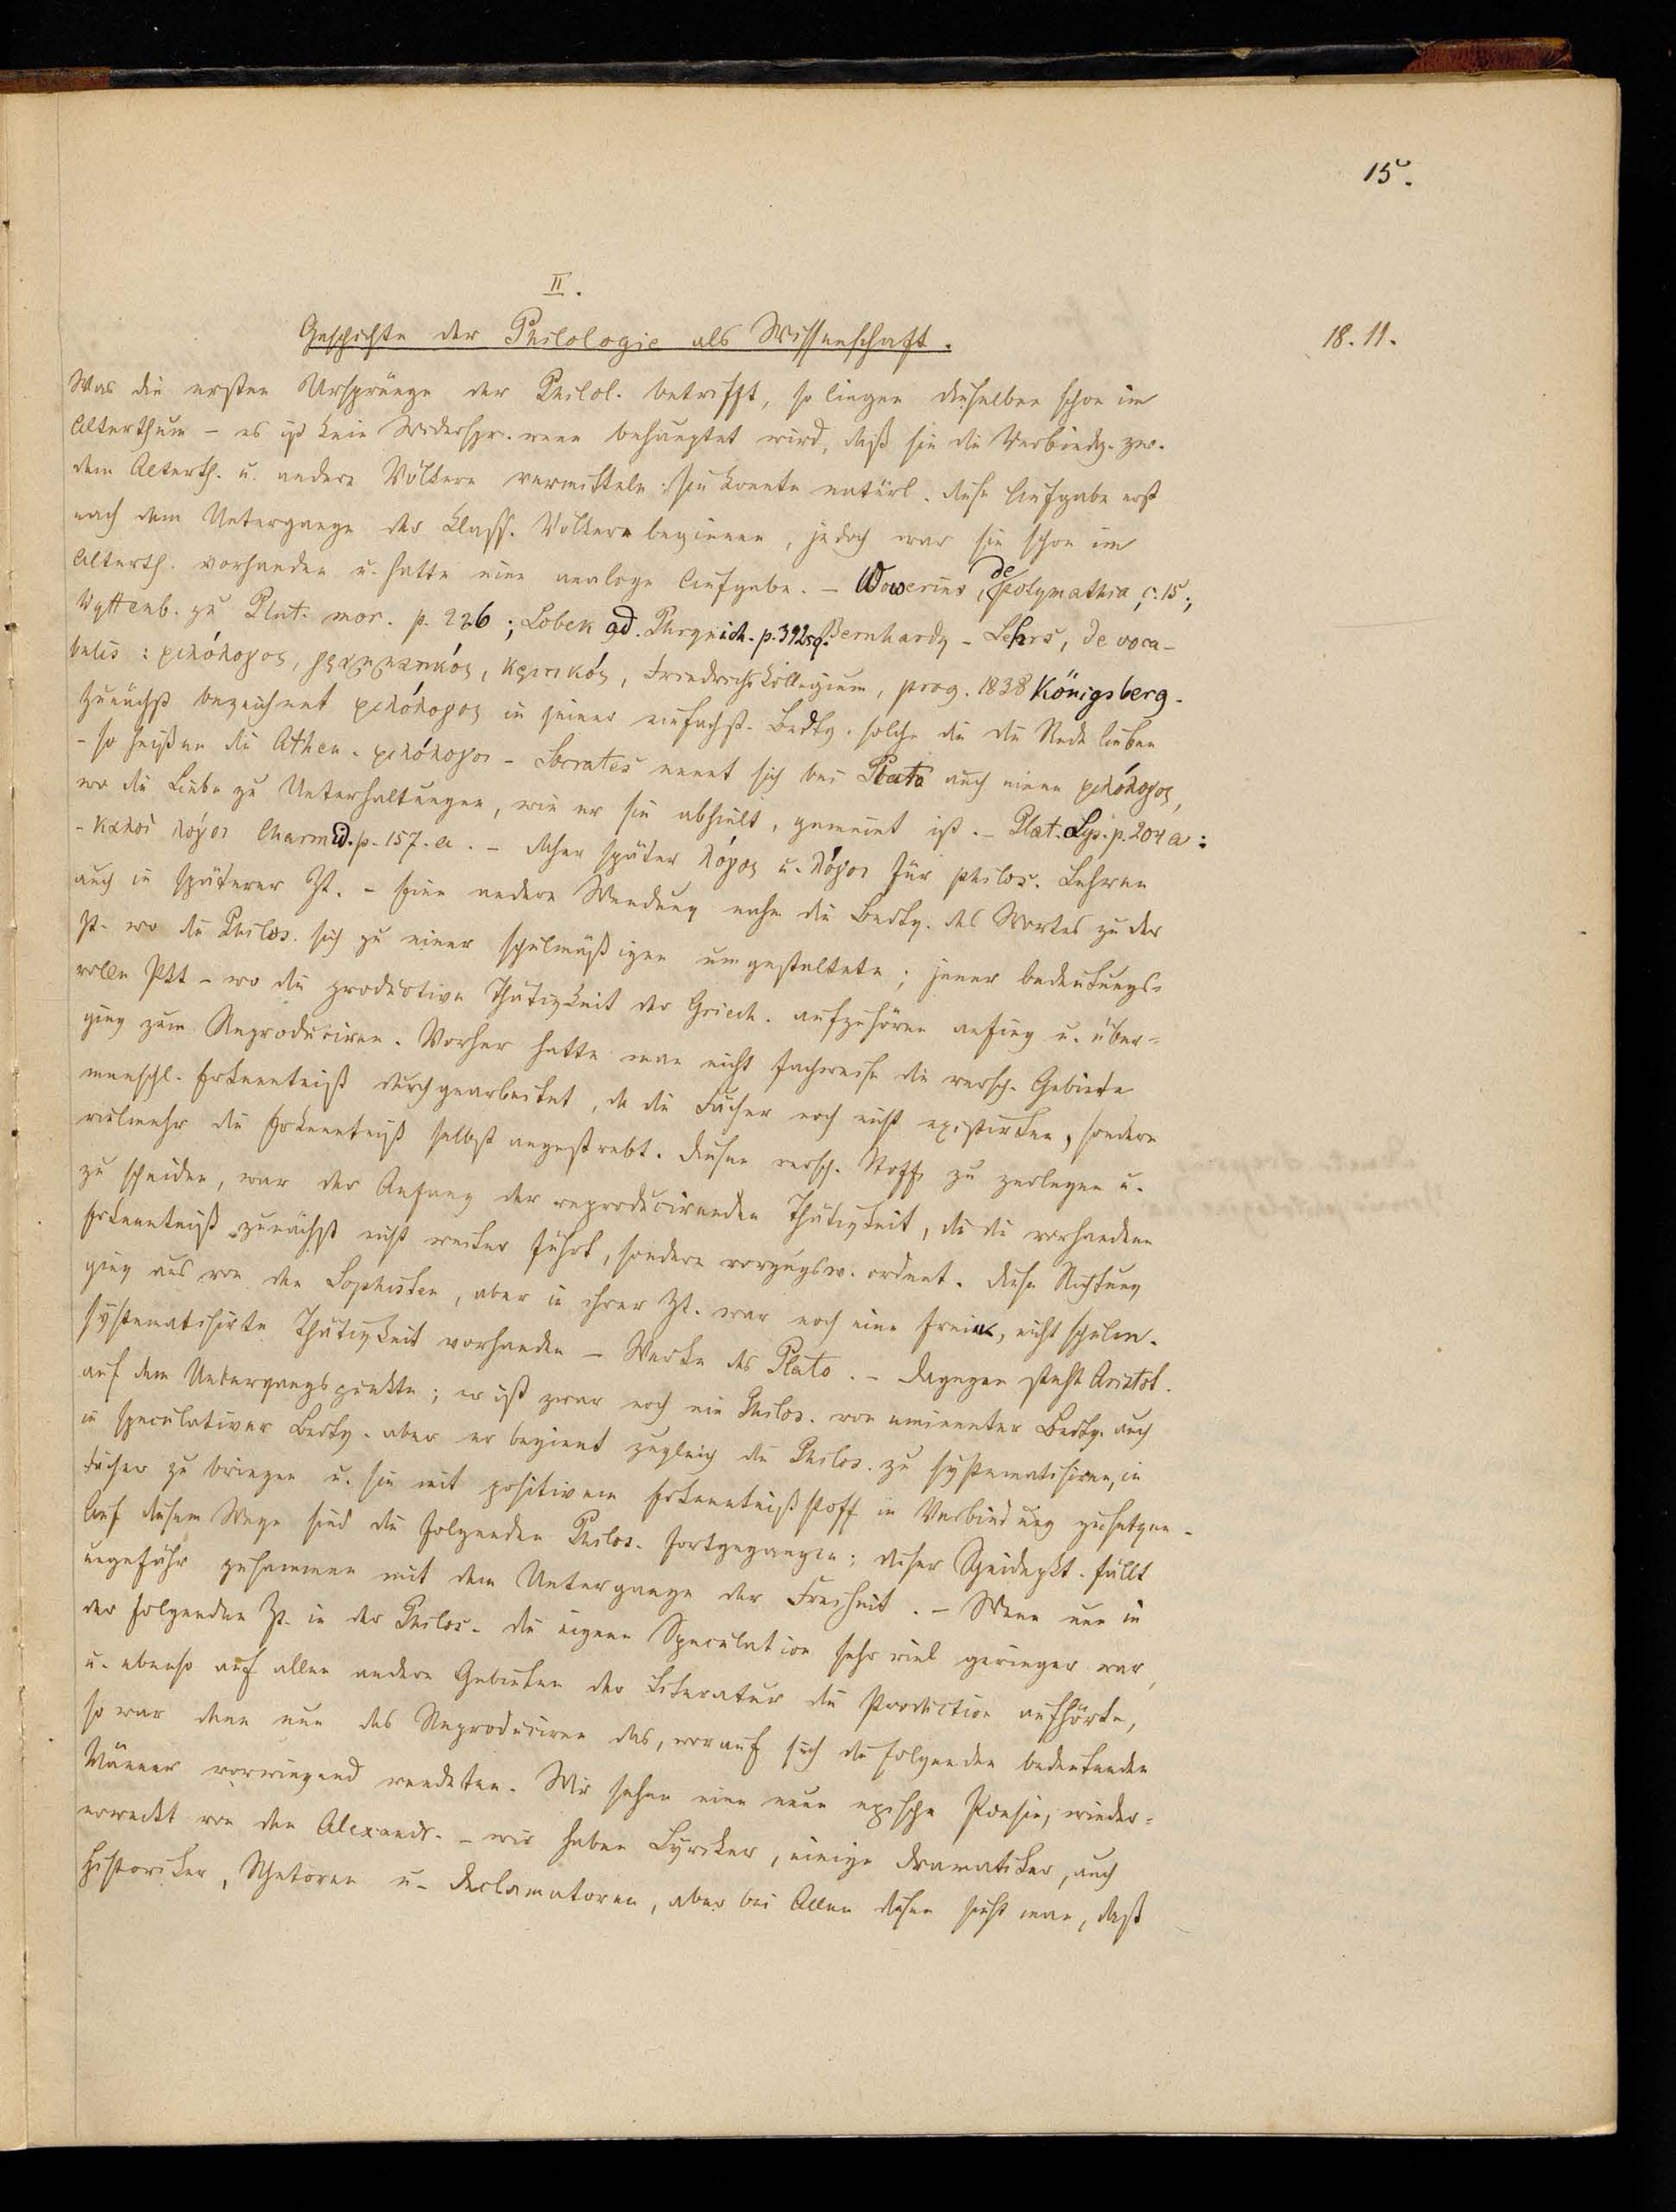 15.
II.
Geschichte der Philologie als Wissenschaft.
18. 11.
Was die ersten Ursprünge der Philol. betrifft, so liegen dieselben schon im
Alterthum – es ist kein Widerspr. wenn behauptet wird, daß sie die Verbindg. zw.
dem Alterth. u. andern Völkern vermitteln: sie konnte natürl. diese Aufgabe erst
nach dem Untergange der klass. Völkern beginnen, jedoch war sie schon im
Alterth. vorhanden u. hatte eine analoge Aufgabe. – Wowerius, de polymathia, c. 15;
Wyttenb. zu Plut. mor. p. 226; Lobek ad. Phrynich. p. 392sq. Bernhardy – Lehrs, de voca-
bulis: φιλόλογος, γραμματικός, κριτικός, Friedrichskollegium, prog. 1838 Königsberg.
Zunächst bezeichnet φιλόλογος in seiner einfachst. Bedtg. solche die die Rede lieben
– so heißen die Athen. φιλόλογοι – Socrates nennt sich bei Plato auch einen φιλόλογος,
wo die Liebe zu Unterhaltungen, wie er sie abhielt, gemeint ist. – Plat. Lys. p. 204 a:
– καλοὶ λόγοι Charmid. p. 157. a. – daher später λόγος u. λόγοι für philos. Lehren
auch in späterer Zt. – Eine andere Wendung nahm die Bedtg. des Wortes zu der
Zt. wo die Philos. sich zu einer schulmäßigen umgestaltete; jener bedeutungs-
volle Pkt – wo die productive Thätigkeit der Griech. aufzuhören anfing u. über-
ging zum Reproduciren. Vorher hatte man nicht fachweise die versch. Gebiete
menschl. Erkenntniß durchgearbeitet, da die Fächer noch nicht existirten, sondern
vielmehr die Erkenntniß selbst angestrebt. Diesen versch. Stoff zu zerlegen u.
zu scheiden, war der Anfang der reproducirenden Thätigkeit, die die vorhandene
Erkenntniß zunächst nicht weiter führt, sondern vorzugsw. ordnet. Diese Richtung
ging aus von den Sophisten, aber in ihrer Zt. war noch eine freie, nicht schulm.
systematisirte Thätigkeit vorhanden – Werke des Plato. – Dagegen steht Aristot.
auf dem Uebergangspunkte; er ist zwar noch ein Philos. von eminenter Bedtg. auch
in speculativer Bedtg. aber er beginnt zugleich die Philos. zu systematisiren, in
Fächer zu bringen u. sie mit positivem Erkenntnißstoff in Verbindung zu setzen.
Auf diesem Wege sind die folgenden Philos. fortgegangen; dieser Scheidepkt. fällt
ungefähr zusammen mit dem Untergange der Freiheit. – Wenn nun in
der folgenden Zt. in der Philos. die eigene Speculation sehr viel geringer war,
u. ebenso auf allen andern Gebieten der Literatur die Production aufhörte,
so war denn nun das Reproduciren das, worauf sich die folgenden bedeutenden
Männer vorwiegend wendeten. Wir sehen eine neue epische Poesie, wieder-
erweckt von den Alexandr. – wir haben Lyriker, einige Dramatiker, auch
Historiker, Rhetoren u. Declamatoren, aber bei Allen diesen sieht man, daß